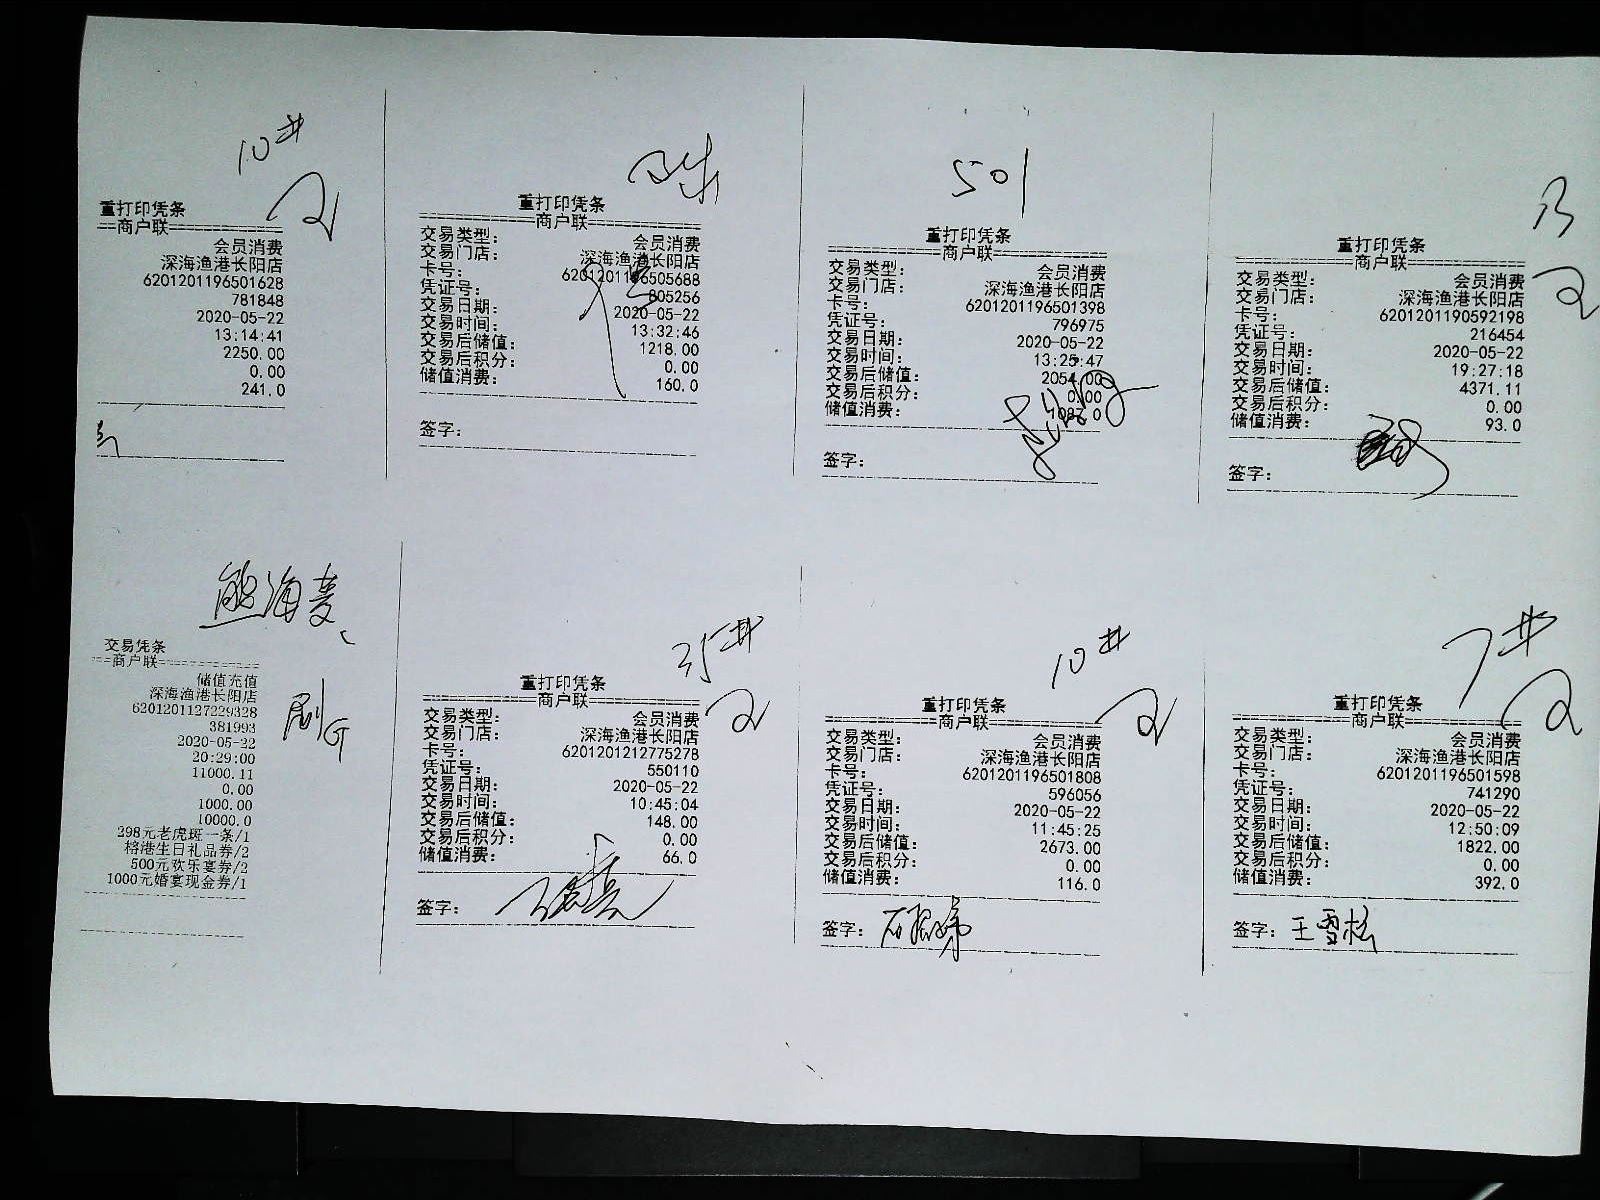 10#
重打印凭条
==商户联==============
会员消费
深海渔港长阳店
6201201196501628
781848
2020-05-22
13:14:41
2250.00
0.00
241.0
重打印凭条
=============商户联=============
交易类型: 会员消费
交易门店: 深海渔港长阳店
卡号: 6201201196505688
凭证号: 805256
交易日期: 2020-05-22
交易时间: 13:32:46
交易后储值: 1218.00
交易后积分: 0.00
储值消费: 160.0
签字:
501
重打印凭条
=============商户联=============
交易类型: 会员消费
交易门店: 深海渔港长阳店
卡号: 6201201196501398
凭证号: 796975
交易日期: 2020-05-22
交易时间: 13:25:47
交易后储值: 2054.00
交易后积分: 0.00
储值消费: 1087.0
签字:
重打印凭条
=============商户联=============
交易类型: 会员消费
交易门店: 深海渔港长阳店
卡号: 6201201190592198
凭证号: 216454
交易日期: 2020-05-22
交易时间: 19:27:18
交易后储值: 4371.11
交易后积分: 0.00
储值消费: 93.0
签字:
熊海麦
刷G
交易凭条
==商户联============
储值充值
深海渔港长阳店
6201201127229328
381993
2020-05-22
20:29:00
11000.11
0.00
1000.00
10000.0
298元老虎斑一条/1
榕港生日礼品券/2
500元欢乐宴券/2
1000元婚宴现金券/1
35#
重打印凭条
=============商户联=============
交易类型: 会员消费
交易门店: 深海渔港长阳店
卡号: 6201201212775278
凭证号: 550110
交易日期: 2020-05-22
交易时间: 10:45:04
交易后储值: 148.00
交易后积分: 0.00
储值消费: 66.0
签字:
10#
重打印凭条
=============商户联=============
交易类型: 会员消费
交易门店: 深海渔港长阳店
卡号: 6201201196501808
凭证号: 596056
交易日期: 2020-05-22
交易时间: 11:45:25
交易后储值: 2673.00
交易后积分: 0.00
储值消费: 116.0
签字:
7#
重打印凭条
=============商户联=============
交易类型: 会员消费
交易门店: 深海渔港长阳店
卡号: 6201201196501598
凭证号: 741290
交易日期: 2020-05-22
交易时间: 12:50:09
交易后储值: 1822.00
交易后积分: 0.00
储值消费: 392.0
签字: 王雪松